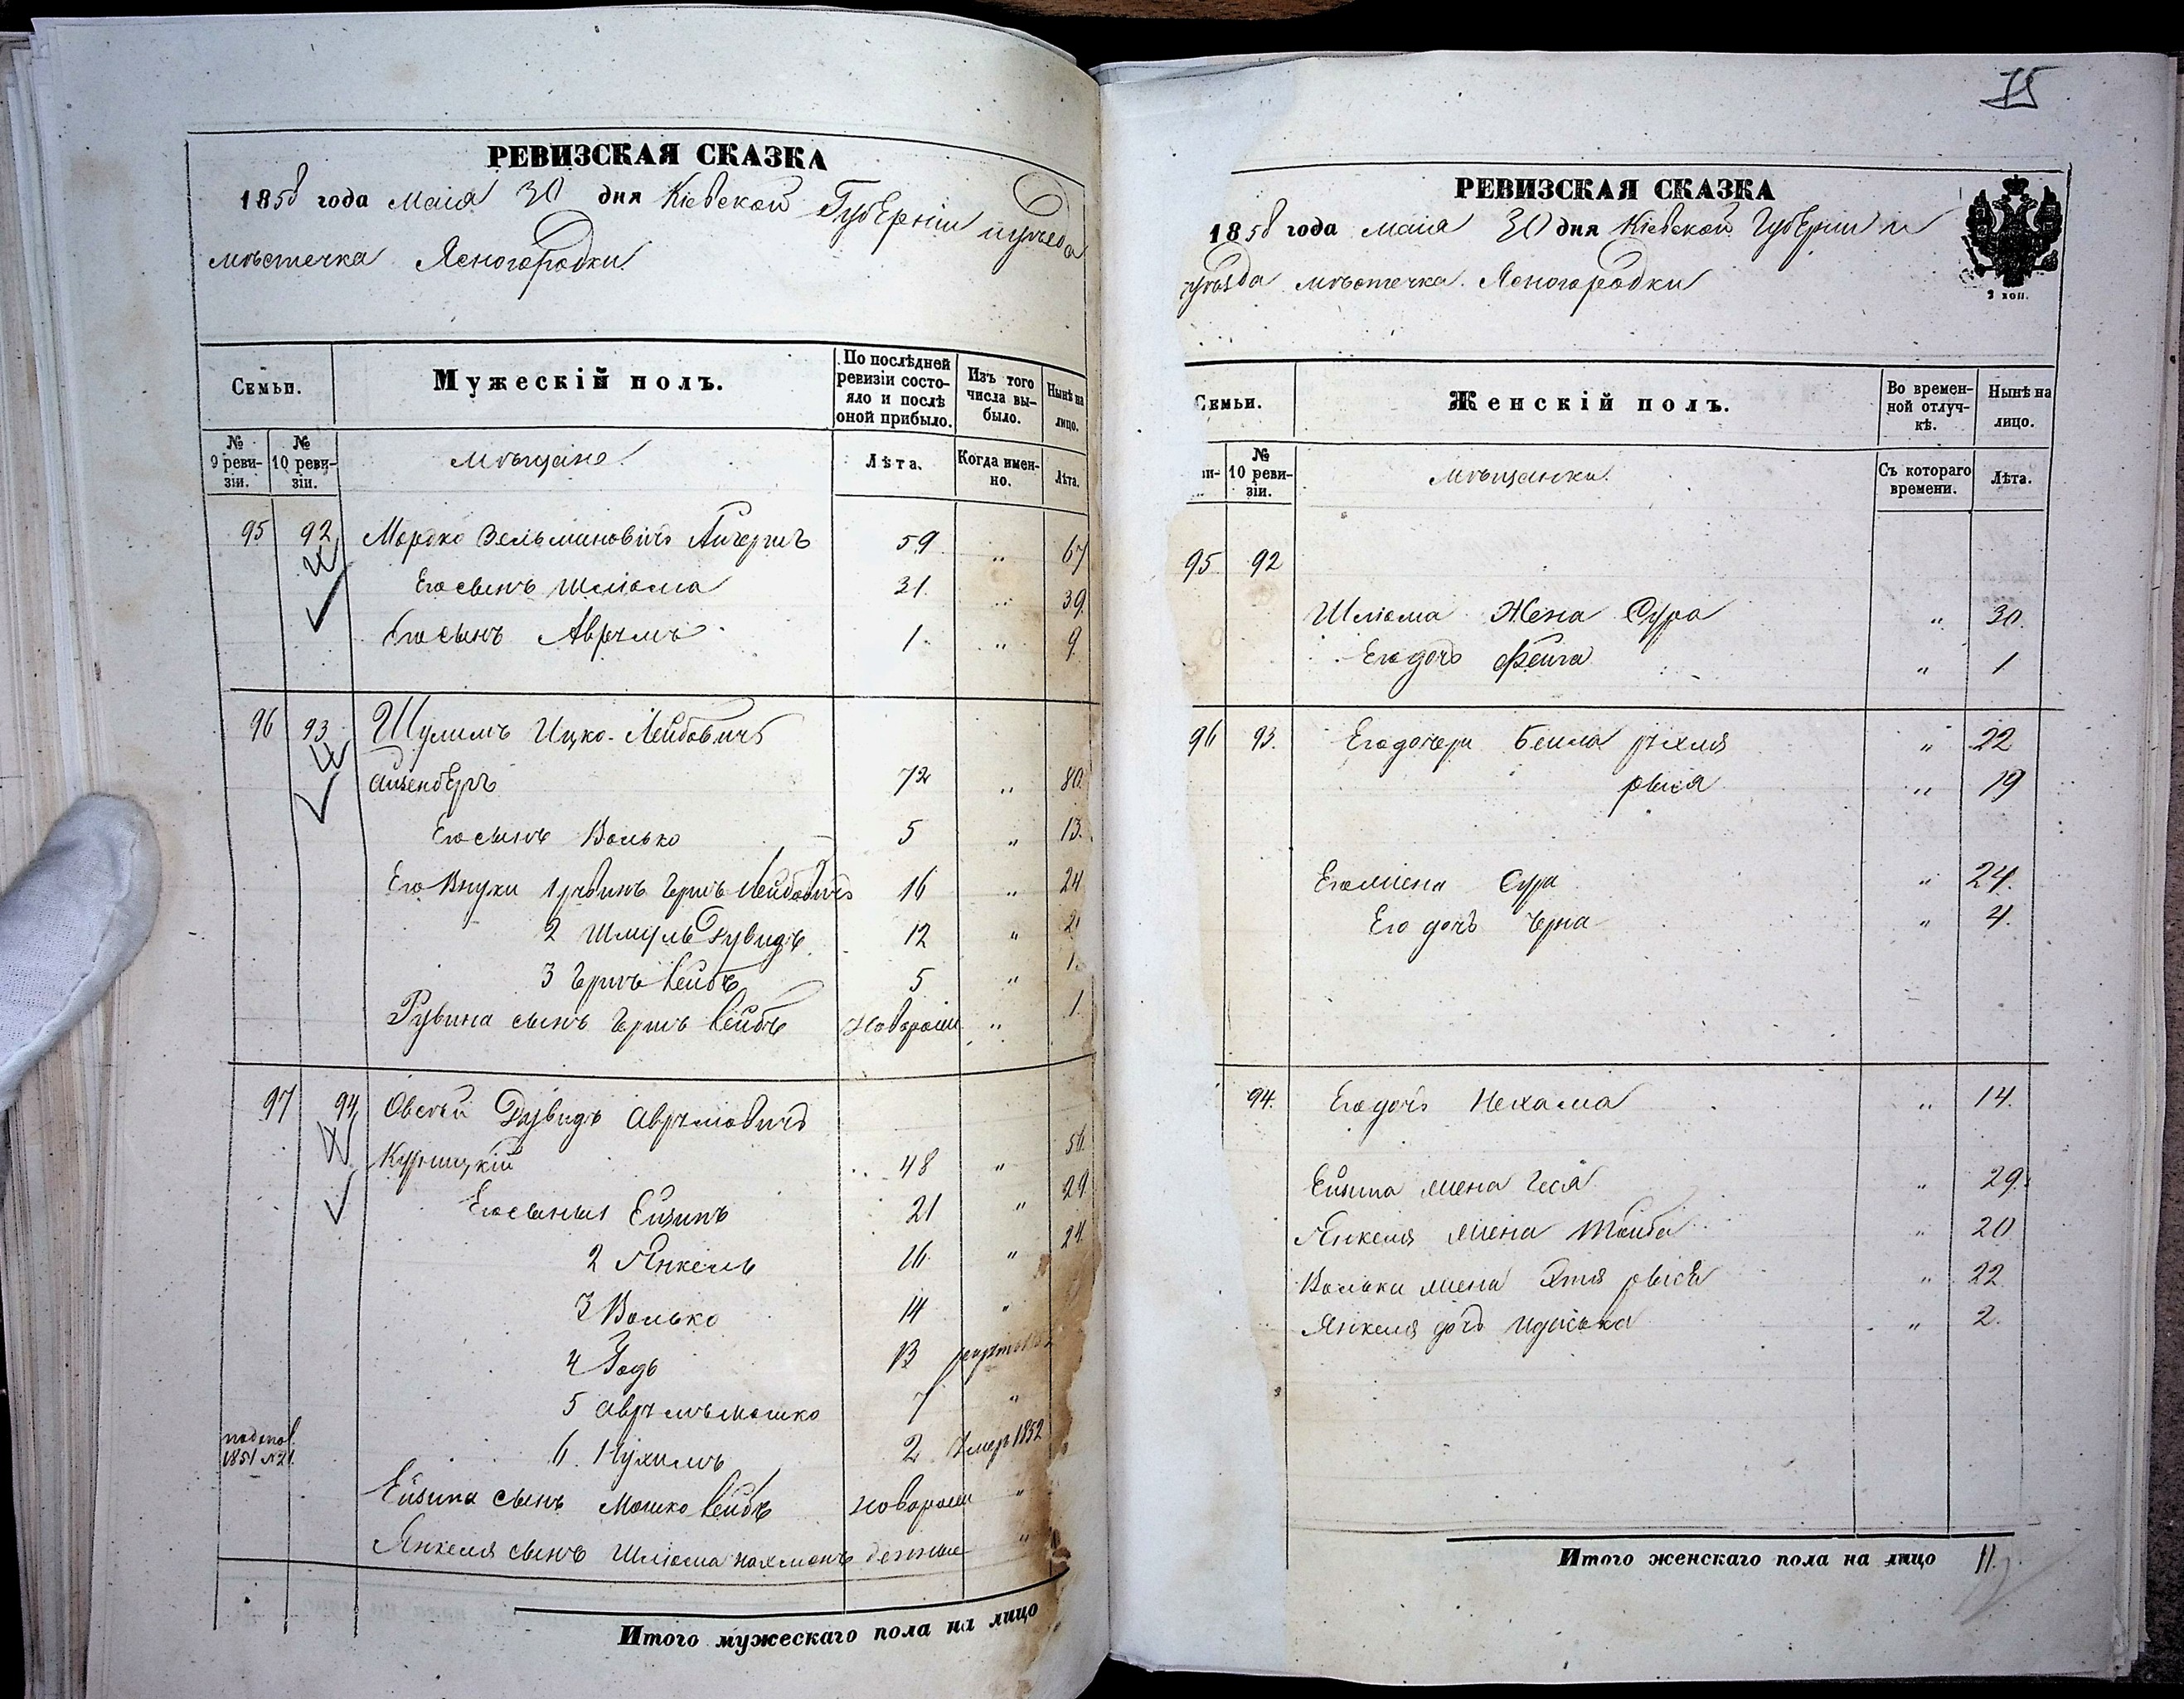 РЕВИЗСКАЯ СКАЗКА
1858 года маія 30 дня Кіевской Губерніи и уѣзда
мѣстечка Ясногородки
Семьи.
Мужескій полъ.
По послѣдней ревизіи состояло и послѣ оной прибыло.
Изъ того числа выбыло.
Нынѣ на лицо.
№ 9 ревизіи.
№ 10 ревизіи.
мѣщане.
Лѣта.
Когда именно.
Лѣта.
95 92 Мордко Зельмановичъ 59 " 67
Его сынъ Шліома 31. " 39.
Его сынъ Аврумъ 1. " 9.
96 93 Шулимъ Ицко-Лейбовичъ
Айзенбергъ 72 " 80.
Его сынъ Волько 5 " 13.
Его Внуки 1 Гершъ Лейбовичъ 16 " 24
2 Шмуль Дувидъ 12 " 2
3 Гершъ Лейбъ 5 " 1
Рувина сынъ Гершъ Лейбъ новорож " 1.
97 94 Овсѣй Дувидъ Аврумовичъ
48 " 56.
Его сыныя Ейзикъ 21 " 29
2 Янкель 16. " 24.
3 Волько 14 "
4 13
5 Аврумъ Мошко 7 "
1851 №21. 6. Нухимъ 2 Умеръ 1852
Ейзика сынъ Мошко Лейбъ новорож "
Янкеля сынъ Шліома Нахманъ денные "
Итого мужескаго пола на лицо
75
РЕВИЗСКАЯ СКАЗКА
1858 года маія 30 дня Кіевской Губерніи и
уѣзда мѣстечка Ясногородки
2 коп.
Семьи.
Женскій полъ.
Во временной отлучкѣ.
Нынѣ на лицо.
№ 10 ревизіи.
мѣщанки.
Съ котораго времени.
Лѣта.
95. 92
Шліома Жена Сура " 30.
Его дочь Фейга " 1
96 93. Его дочери Бейла Рухля " 22
Рыся " 19
Его жена Сура " 24.
Его дочь Черна " 4.
94. Его дочь Нехама " 14.
Ейзика жена Геся " 29.
Янкеля жена Тойба " 20
Вольки жена Этя Рыся " 22
Янкеля дочь " 2.
Итого женскаго пола на лицо 11.